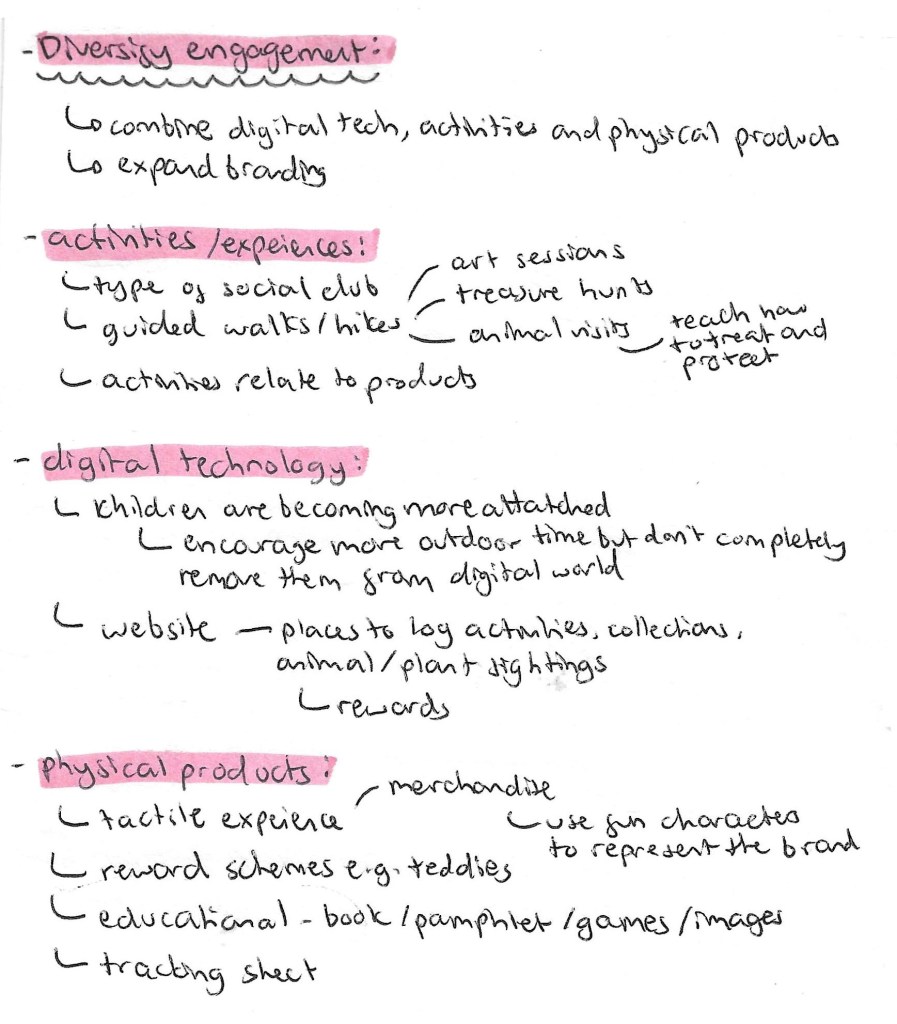 - Diversify engagement:
↳ combine digital tech, activities and physical products
↳ expand branding
- activities/expeiences:
art sessions
↳ type of social club
treasure hunts
↳ guided walks/hikes
animal visits
teach how
to treat and
protect
↳ activities relate to products
- digital technology:
↳ children are becoming more attatched
↳ encourage more outdoor time but don't completely
remove them from digital world
↳ website — places to log activities, collections,
animal/plant sightings
↳ rewards
- physical products:
merchandise
↳ tactile expeience
↳ use fun characters
to represent the brand
↳ reward schemes e.g. teddies
↳ educational - book/pamphlet/games/images
↳ tracking sheet